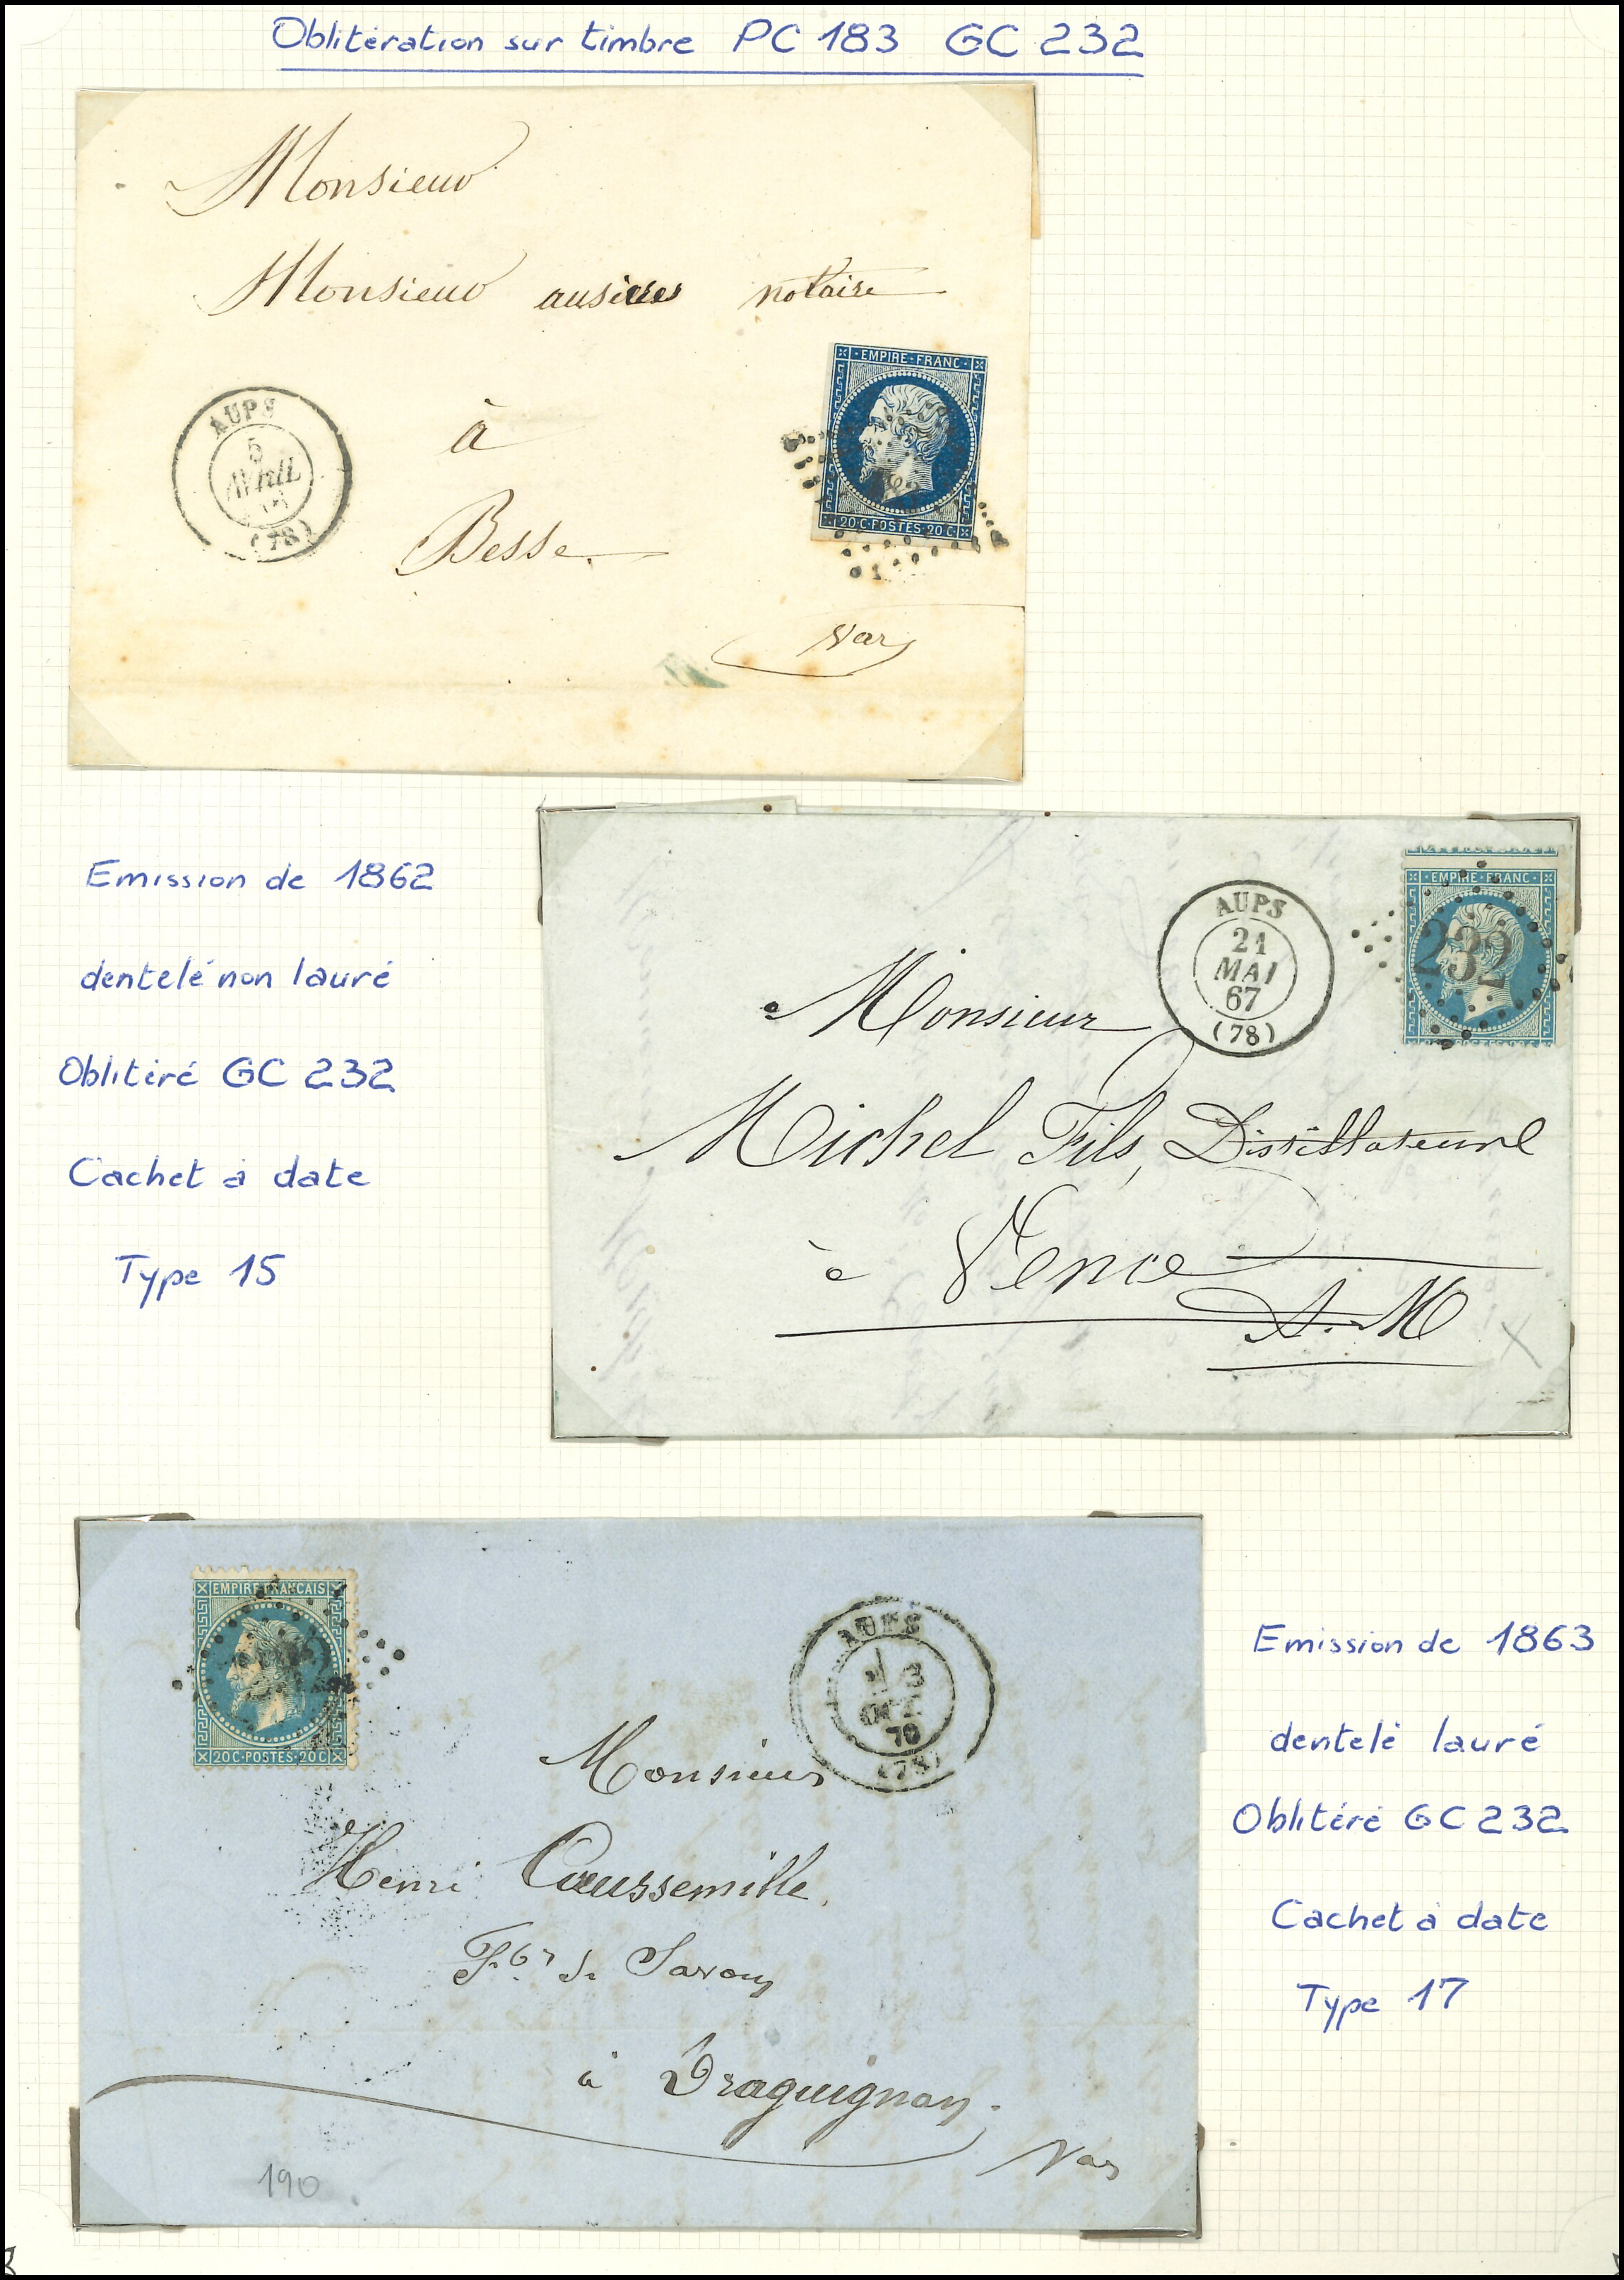 Oblitération sur timbre PC 183 GC 232
Monsieur
Monsieur notaire
à
Besse
Var
AUPS
5
AVRIL
(78)
EMPIRE FRANC
20 C POSTES 20 C
Emission de 1862
dentelé non lauré
Oblitéré GC 232
Cachet à date
Type 15
AUPS
21
MAI
67
(78)
EMPIRE FRANC
232
Monsieur
Michel Fils, Distillateur
à Vence
A. M
X
EMPIRE FRANCAIS
20 C POSTES 20 C
AUPS
3
OCT.
70
(78)
Monsieur
Henri Coussemille
Fbt de Savon
à Draguignan.
Var
190
Emission de 1863
dentelé lauré
Oblitéré GC 232
Cachet à date
Type 17